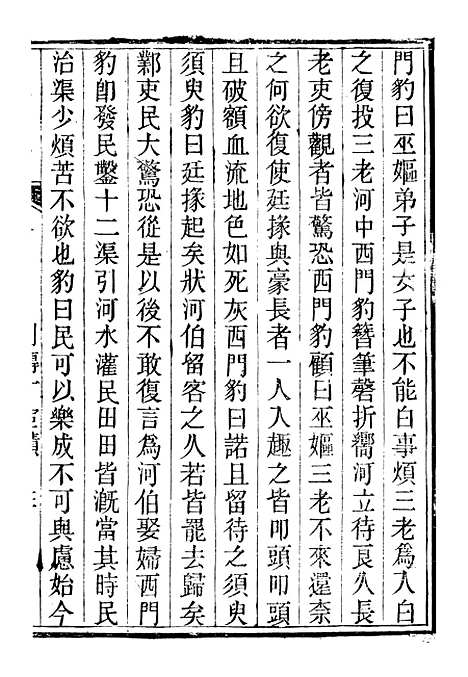 門豹曰巫嫗弟子是女子也不能白事煩三老爲入白
之復投三老河中西門豹簪筆磬折嚮河立待良久長
老吏傍觀者皆驚恐西門豹顧曰巫嫗三老不來還柰
之何欲復使廷掾與豪長者一人入趣之皆叩頭叩頭
且破額血流地色如死灰西門豹曰諾且留待之須臾
須臾豹曰廷掾起矣狀河伯留客之久若皆罷去歸矣
鄴吏民大驚恐從是以後不敢復言爲河伯娶婦西門
豹卽發民鑿十二渠引河水灌民田田皆漑當其時民
治渠少煩苦不欲也豹曰民可以樂成不可與慮始今